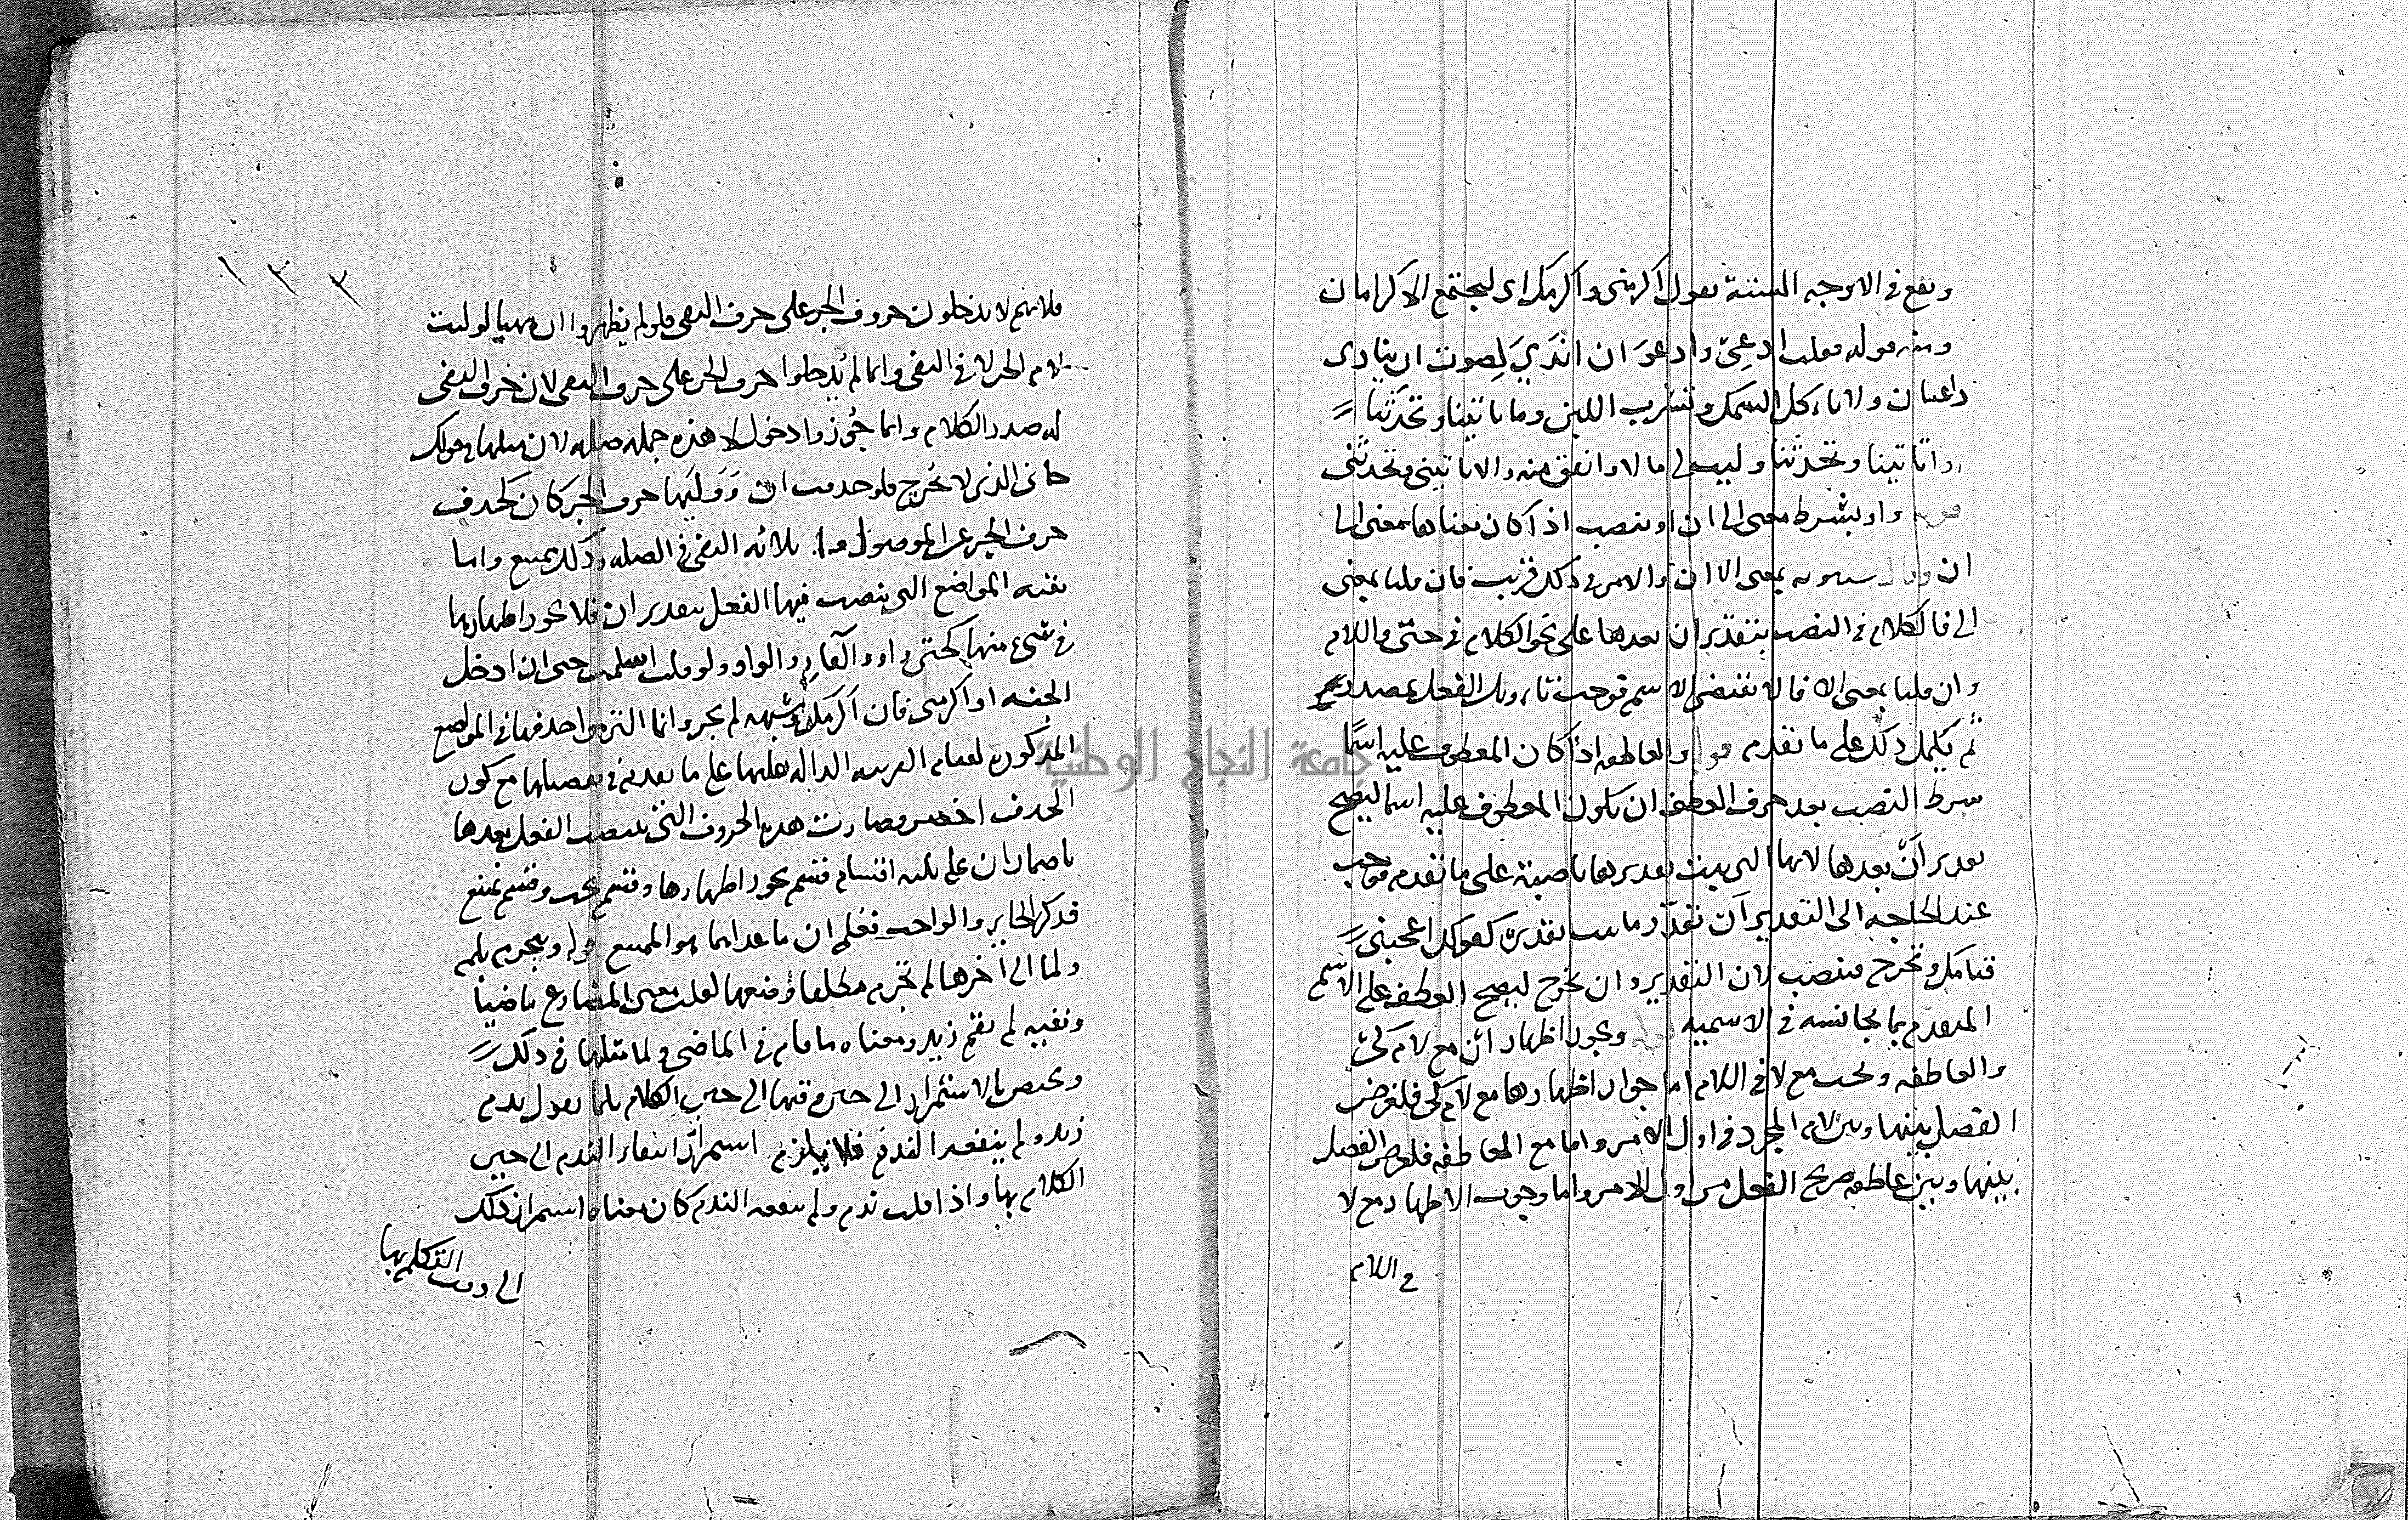 ويقع في الاوجه الستة تقول اكرمني واكرمك اي ليجتمع الاكرامان
ومنه قوله فقلت ادعي وادعو ان اندى لصوت ان ينادي
داعيان ولا تاءكل السمك وتشرب اللبن وما تاتينا وتحدثنا
وا تاتينا وتحدثنا وليت لي مالا وانفق منه والا تاتيني وتحدثني
قوله واو بشرط معنى الى ان او ينصب اذا كان معناها معنى الى
ان وقال سيبويه بمعنى الا ان والامر في ذلك قريب فان قلنا بمعنى
الى فالكلام في النصب بتقدير ان بعدها على نحو الكلام في حتى واللام
وان قلنا بمعنى الا فالا تقتضي الاسم فوجب تاءويل الفعل بمصدر
ثم يكمل ذلك على ما تقدم قوله والعاطفه اذا كان المعطوف عليه اسما
شرط النصب بعد حروف العطف ان يكون المعطوف عليه اسما ليصح
تقدير ان بعدها لانها التي يثبت تقديرها ناصبة على ما تقدم فوجب
عند الحاجه الى التقدير ان تقدر ما ثبت تقديره كقولك اعجبني
قيامك وتخرج فتنصب لان التقدير وان تخرج ليصح العطف على الاسم
المتقدم بما يجانسه في الاسميه قوله ويجوز اظهار ان مع لام كي
والعاطفه ويجب مع لا في اللام اما جواز اظهارها مع لام كي فلغرض
الفصل بينها وبين لام الجر في اول الامر واما مع العاطفه فلغرض الفصل
بينها وبين عاطفه صريح الفعل من اول الامر واما وجوب الاظهار مع لا
في اللام
١٣٣
فلانهم لا يدخلون حروف الجر على حرف النفي فلو لم يظهروا ان هنا لوليت
لام الجر لا في النفي وانما لم يدخلوا حرف الجر على حرف النفي لان حرف النفي
له صدر الكلام وانما جوزوا دخول لا هذه جمله صله لان مثلها في قولك
جاءني الذي لا يخرج فلو حذفت ان ووليها حرف الجر كان كحذف
حرف الجر على الموصول النفي في الصله وذلك ممتنع واما
بقيه المواضع التي ينصب فيها الفعل بتقدير ان فلا يجوز اظهارها
في شيء منها كحتى واو والفاء والواو ولو قلت اسلمت حتى ان ادخل
الجنه او اكرمني فان اكرمك وشبهه لم يجز وانما التزموا حذفها في المواضع
المذكوره لقيام القرينه الداله عليها على ما تقدم في تفصيلها مع كون
الحذف اخصر وصارت هذه الحروف التي ينتصب الفعل بعدها
باضمار ان على ثلثه اقسام قسم يجوز اظهارها وقسم يجب وقسم يمتنع
فذكر الجايز والواجب فعلم ان ما عداهما هو الممتنع قوله وينجزم بلم
ولما الى اخرها لم تجزم مطلقا وضعها لقلب معنى المضارع ماضيا
ونفيه لم يقم زيد ومعناه ما قام في الماضي ولما مثلها في ذلك
وتختص بالاستمرار الى حين وقتها الى حين الكلام بلما تقول ندم
زيد ولم ينفعه الندم فلا يلزم استمرار انتفاء الندم الى حين
الكلام بها واذا قلت ندم ولم ينفعه الندم كان معناه استمرار ذلك
الى وقت التكلم بها
جامعة النجاح الوطنية